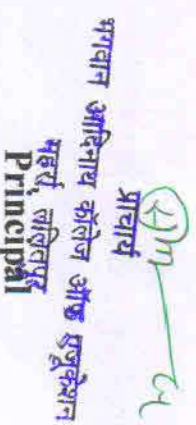 प्राचार्य
भगवान आदिनाथ कॉलेज ऑफ एजूकेशन
महर्रा, ललितपुर
Principal